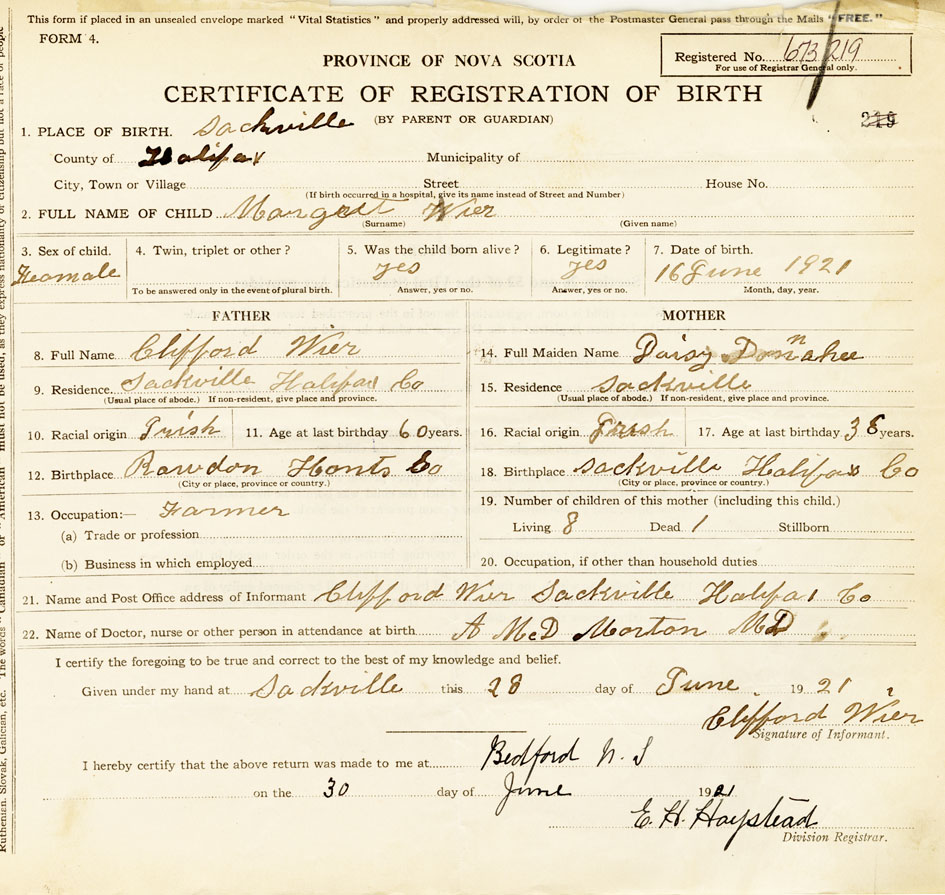 This form if placed in an unsealed envelope marked "Vital Statistics" and properly addressed will, by order of the Postmaster General pass through the Mails "FREE."
FORM 4.
Registered No. 673 219
For use of Registrar General only.
PROVINCE OF NOVA SCOTIA
CERTIFICATE OF REGISTRATION OF BIRTH
(BY PARENT OR GUARDIAN)
219
1. PLACE OF BIRTH. Sackville
County of Halifax Municipality of
City, Town or Village Street House No.
(If birth occurred in a hospital, give its name instead of Street and Number)
2. FULL NAME OF CHILD Margret Wier
(Surname) (Given name)
3. Sex of child. 4. Twin, triplet or other? 5. Was the child born alive? 6. Legitimate? 7. Date of birth.
Feamale yes yes 16 June 1921
To be answered only in the event of plural birth. Answer, yes or no. Answer, yes or no. Month, day, year.
FATHER MOTHER
8. Full Name Clifford Wier 14. Full Maiden Name Daisy Donnahee
9. Residence. Sackville Halifax Co 15. Residence Sackville
(Usual place of abode.) If non-resident, give place and province. (Usual place of abode.) If non-resident, give place and province.
10. Racial origin Irish 11. Age at last birthday 60 years. 16. Racial origin Irish 17. Age at last birthday 38 years.
12. Birthplace Rawdon Hants Co 18. Birthplace Sackville Halifax Co
(City or place, province or country.) (City or place, province or country.)
13. Occupation:— Farmer 19. Number of children of this mother (including this child.)
(a) Trade or profession Living 8 Dead 1 Stillborn
(b) Business in which employed 20. Occupation, if other than household duties
21. Name and Post Office address of Informant Clifford Wier Sackville Halifax Co
22. Name of Doctor, nurse or other person in attendance at birth A McD Morton MD
I certify the foregoing to be true and correct to the best of my knowledge and belief.
Given under my hand at Sackville this 28 day of June 1921
Clifford Wier
Signature of Informant.
I hereby certify that the above return was made to me at Bedford N. S
on the 30 day of June 1921
E. H. Haystead
Division Registrar.
Ruthenian, Slovak, Galician, etc. The words "Canadian" or "American" must not be used, as they express nationality or citizenship but not a race of people